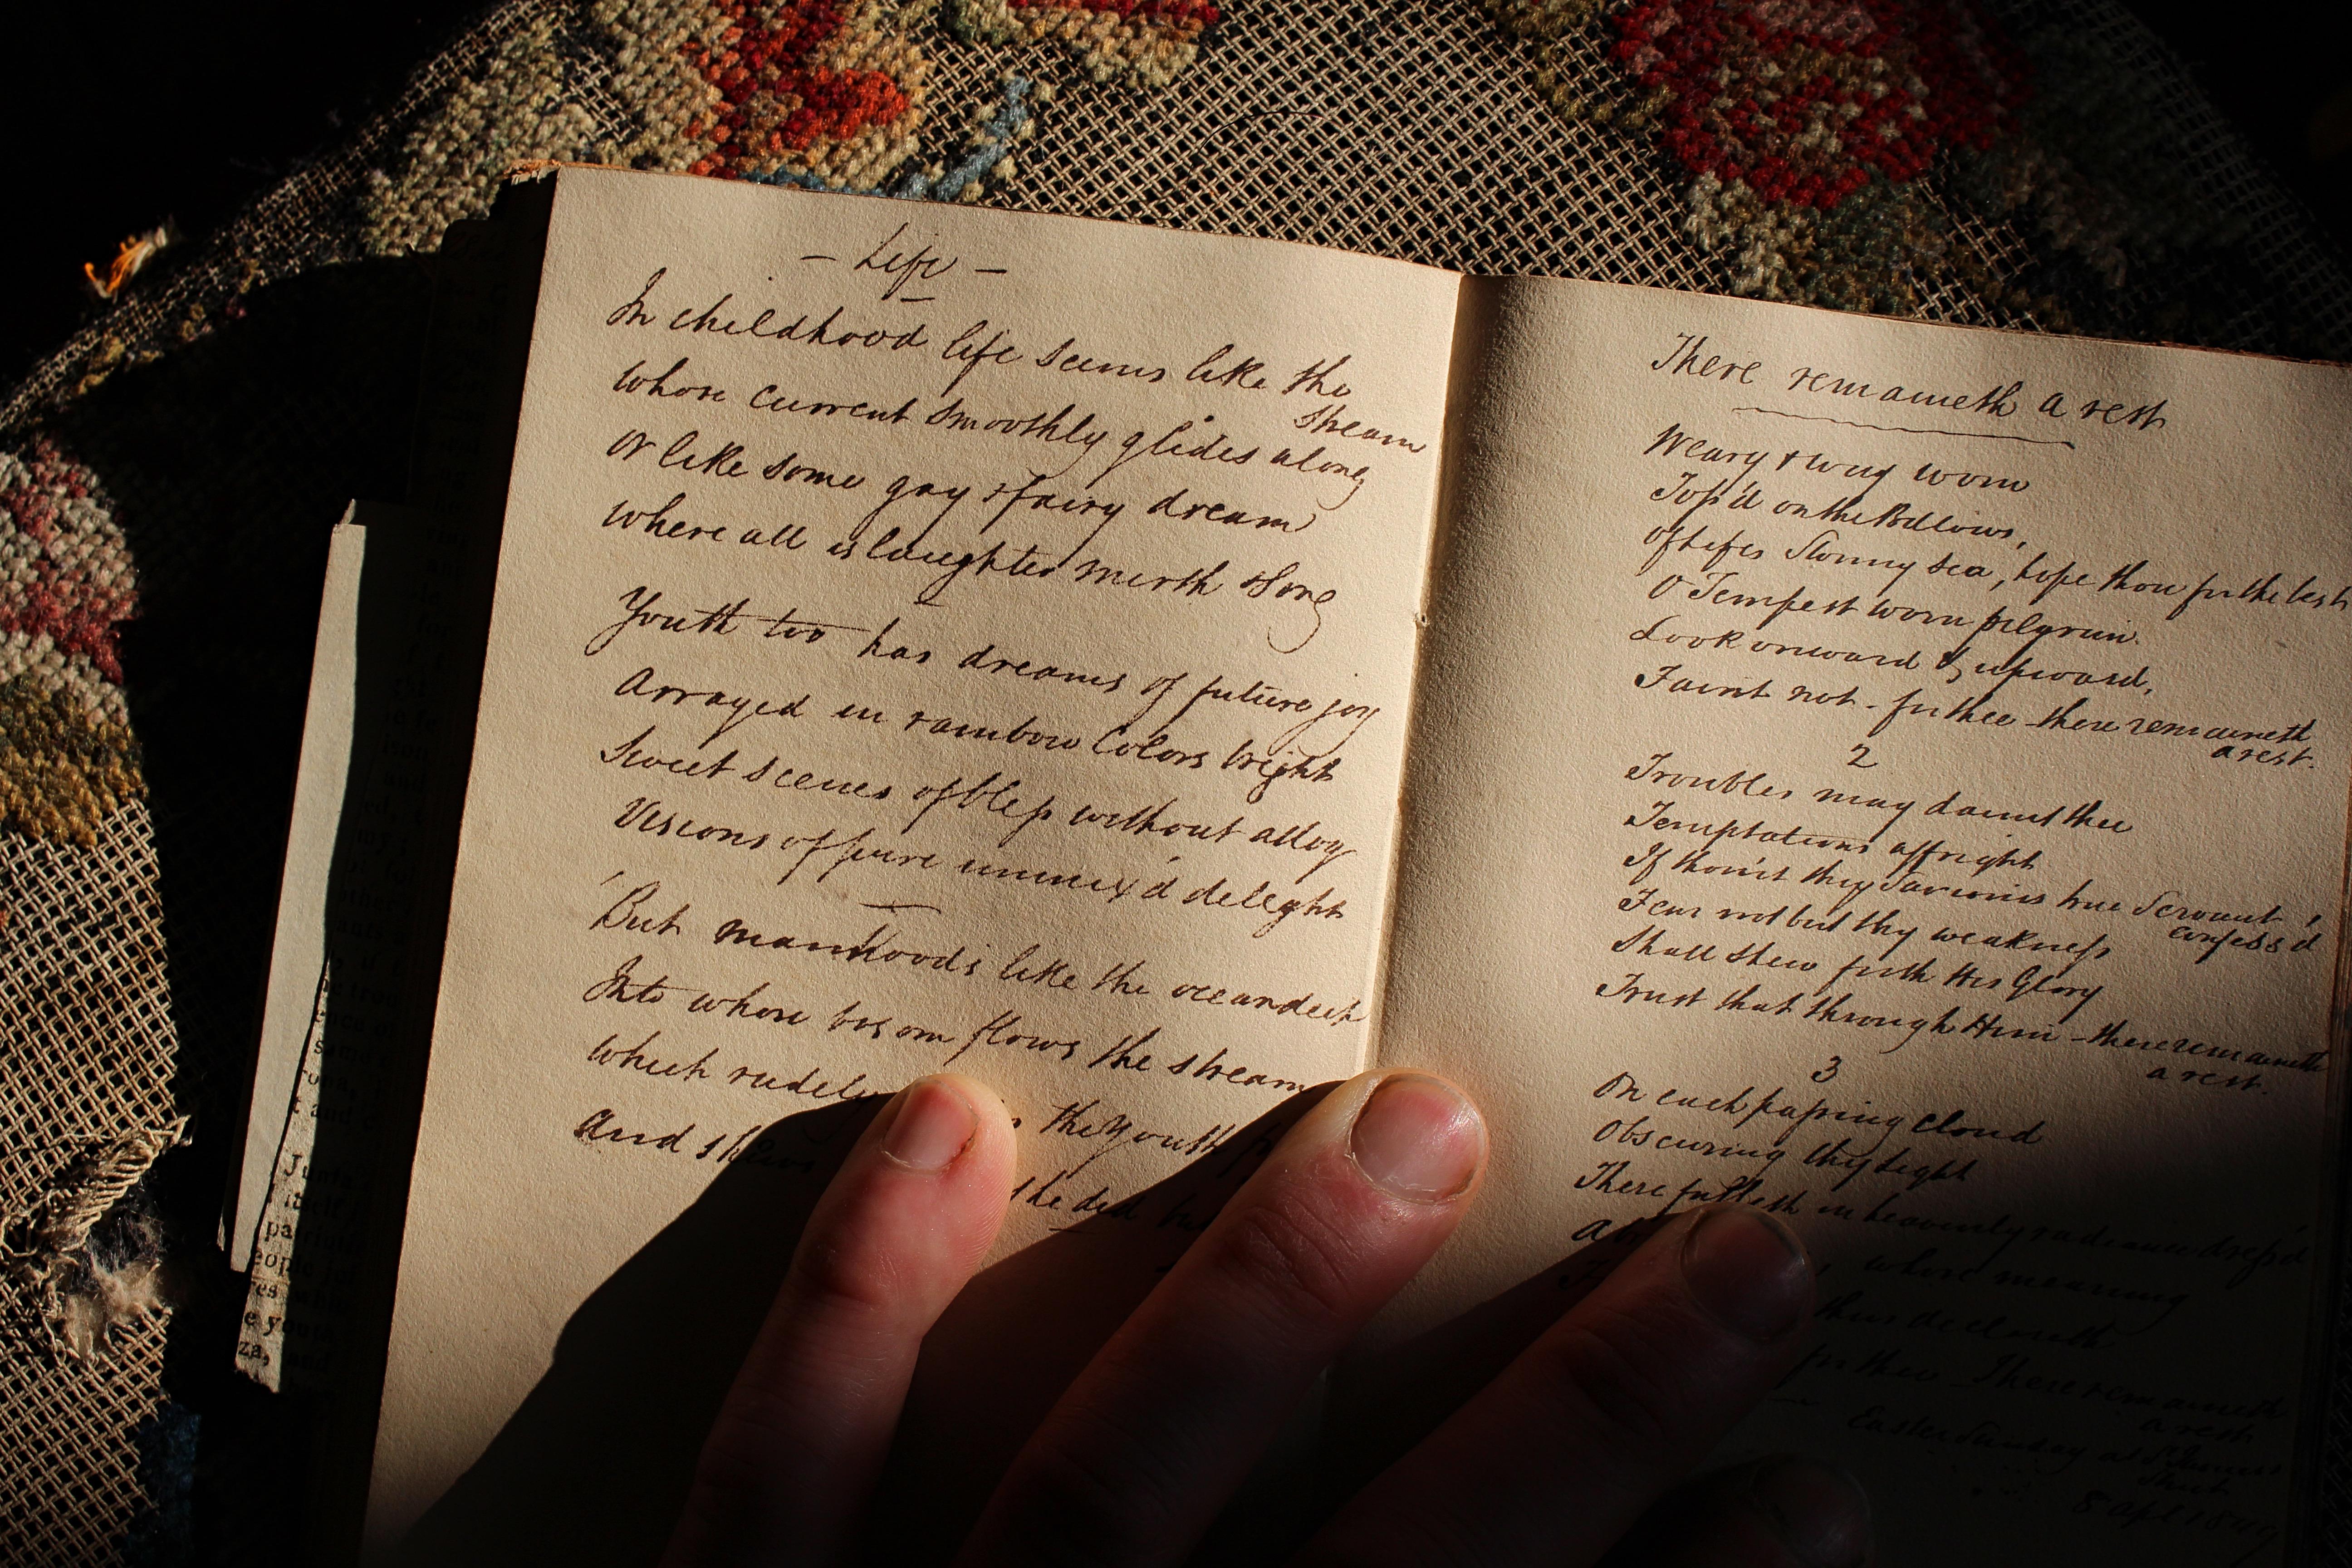 — Life —
In childhood life seems like the
stream
whose current smoothly glides along
Or like some gay & fairy dream
where all is laughter mirth & song
Youth too has dreams of future joy
Arrayed in rainbow Colors bright
Sweet scenes of bless without alloy
Visions of pure unmix'd delight
But manhoods like the ocean deep
Into whose bosom flows the stream
which rudely the Youth
And shews he did but
There remaineth a rest
Weary & way worn
Toss'd on the Billows,
Of Lifes Stormy Sea, hope thou for the best
O Tempest worn pilgrim.
Look onward & upward,
Faint not - for thee - there remaineth
a rest.
2
Troubles may daunt thee
Temptations affright
If thou'rt thy Saviours true Servant
confess'd
Fear not but thy weakness
Shall shew forth His Glory
Trust that through Him - there remaineth
a rest.
3
On each passing Cloud
Obscuring thy Light
There fulless in heavenly radiance dress'd
whose meaning
thus declareth
for thee - There remaineth
a rest.
Easter Sunday at St James
8 April 1849
Junta
itself
people
e your
za, and